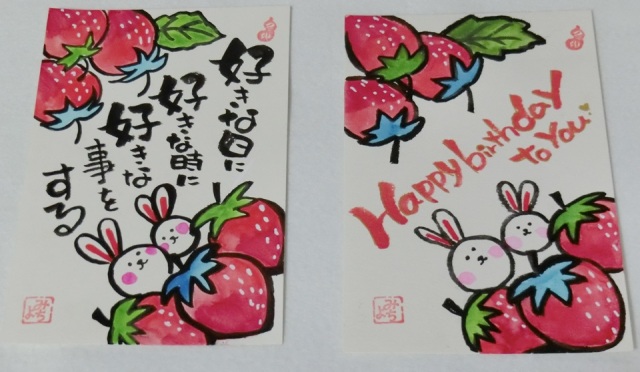 好きな日に
好きな時に
好きな
事を
する
Happy birthday
to you